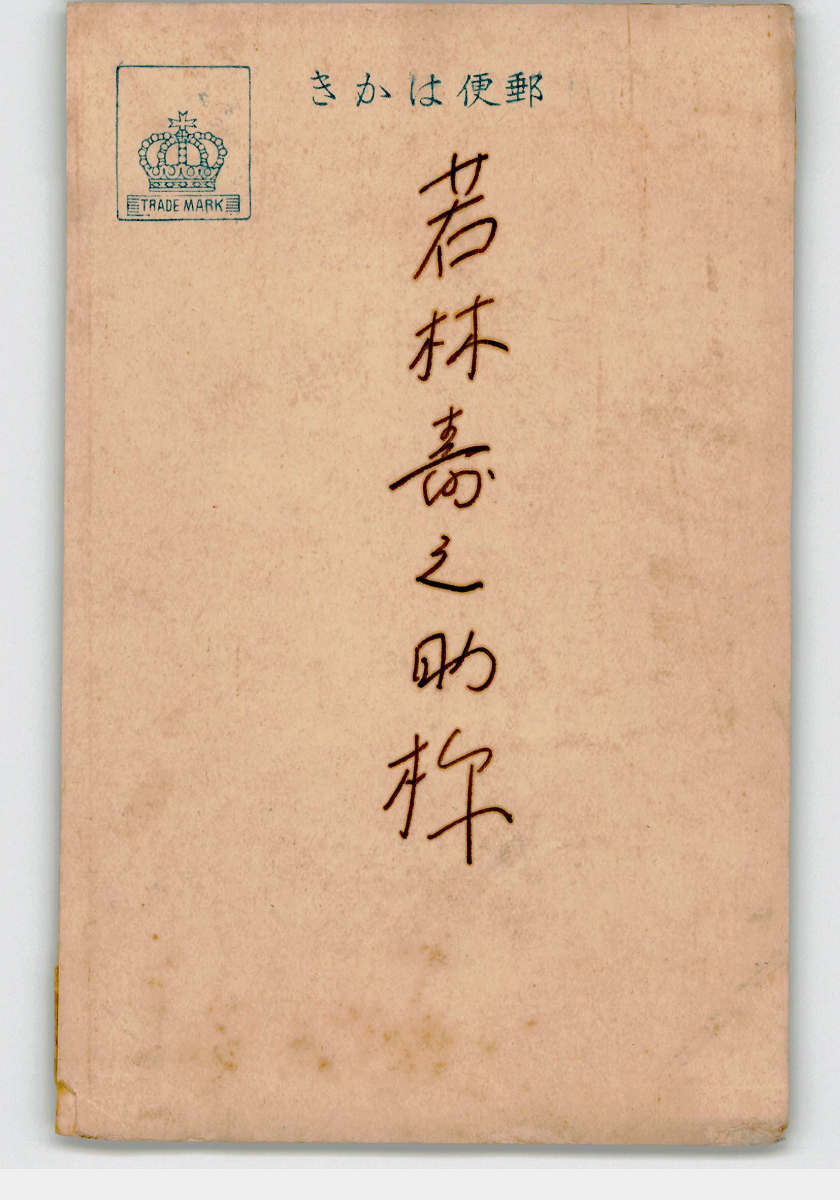 きかは便郵
TRADE MARK
若林寿之助様